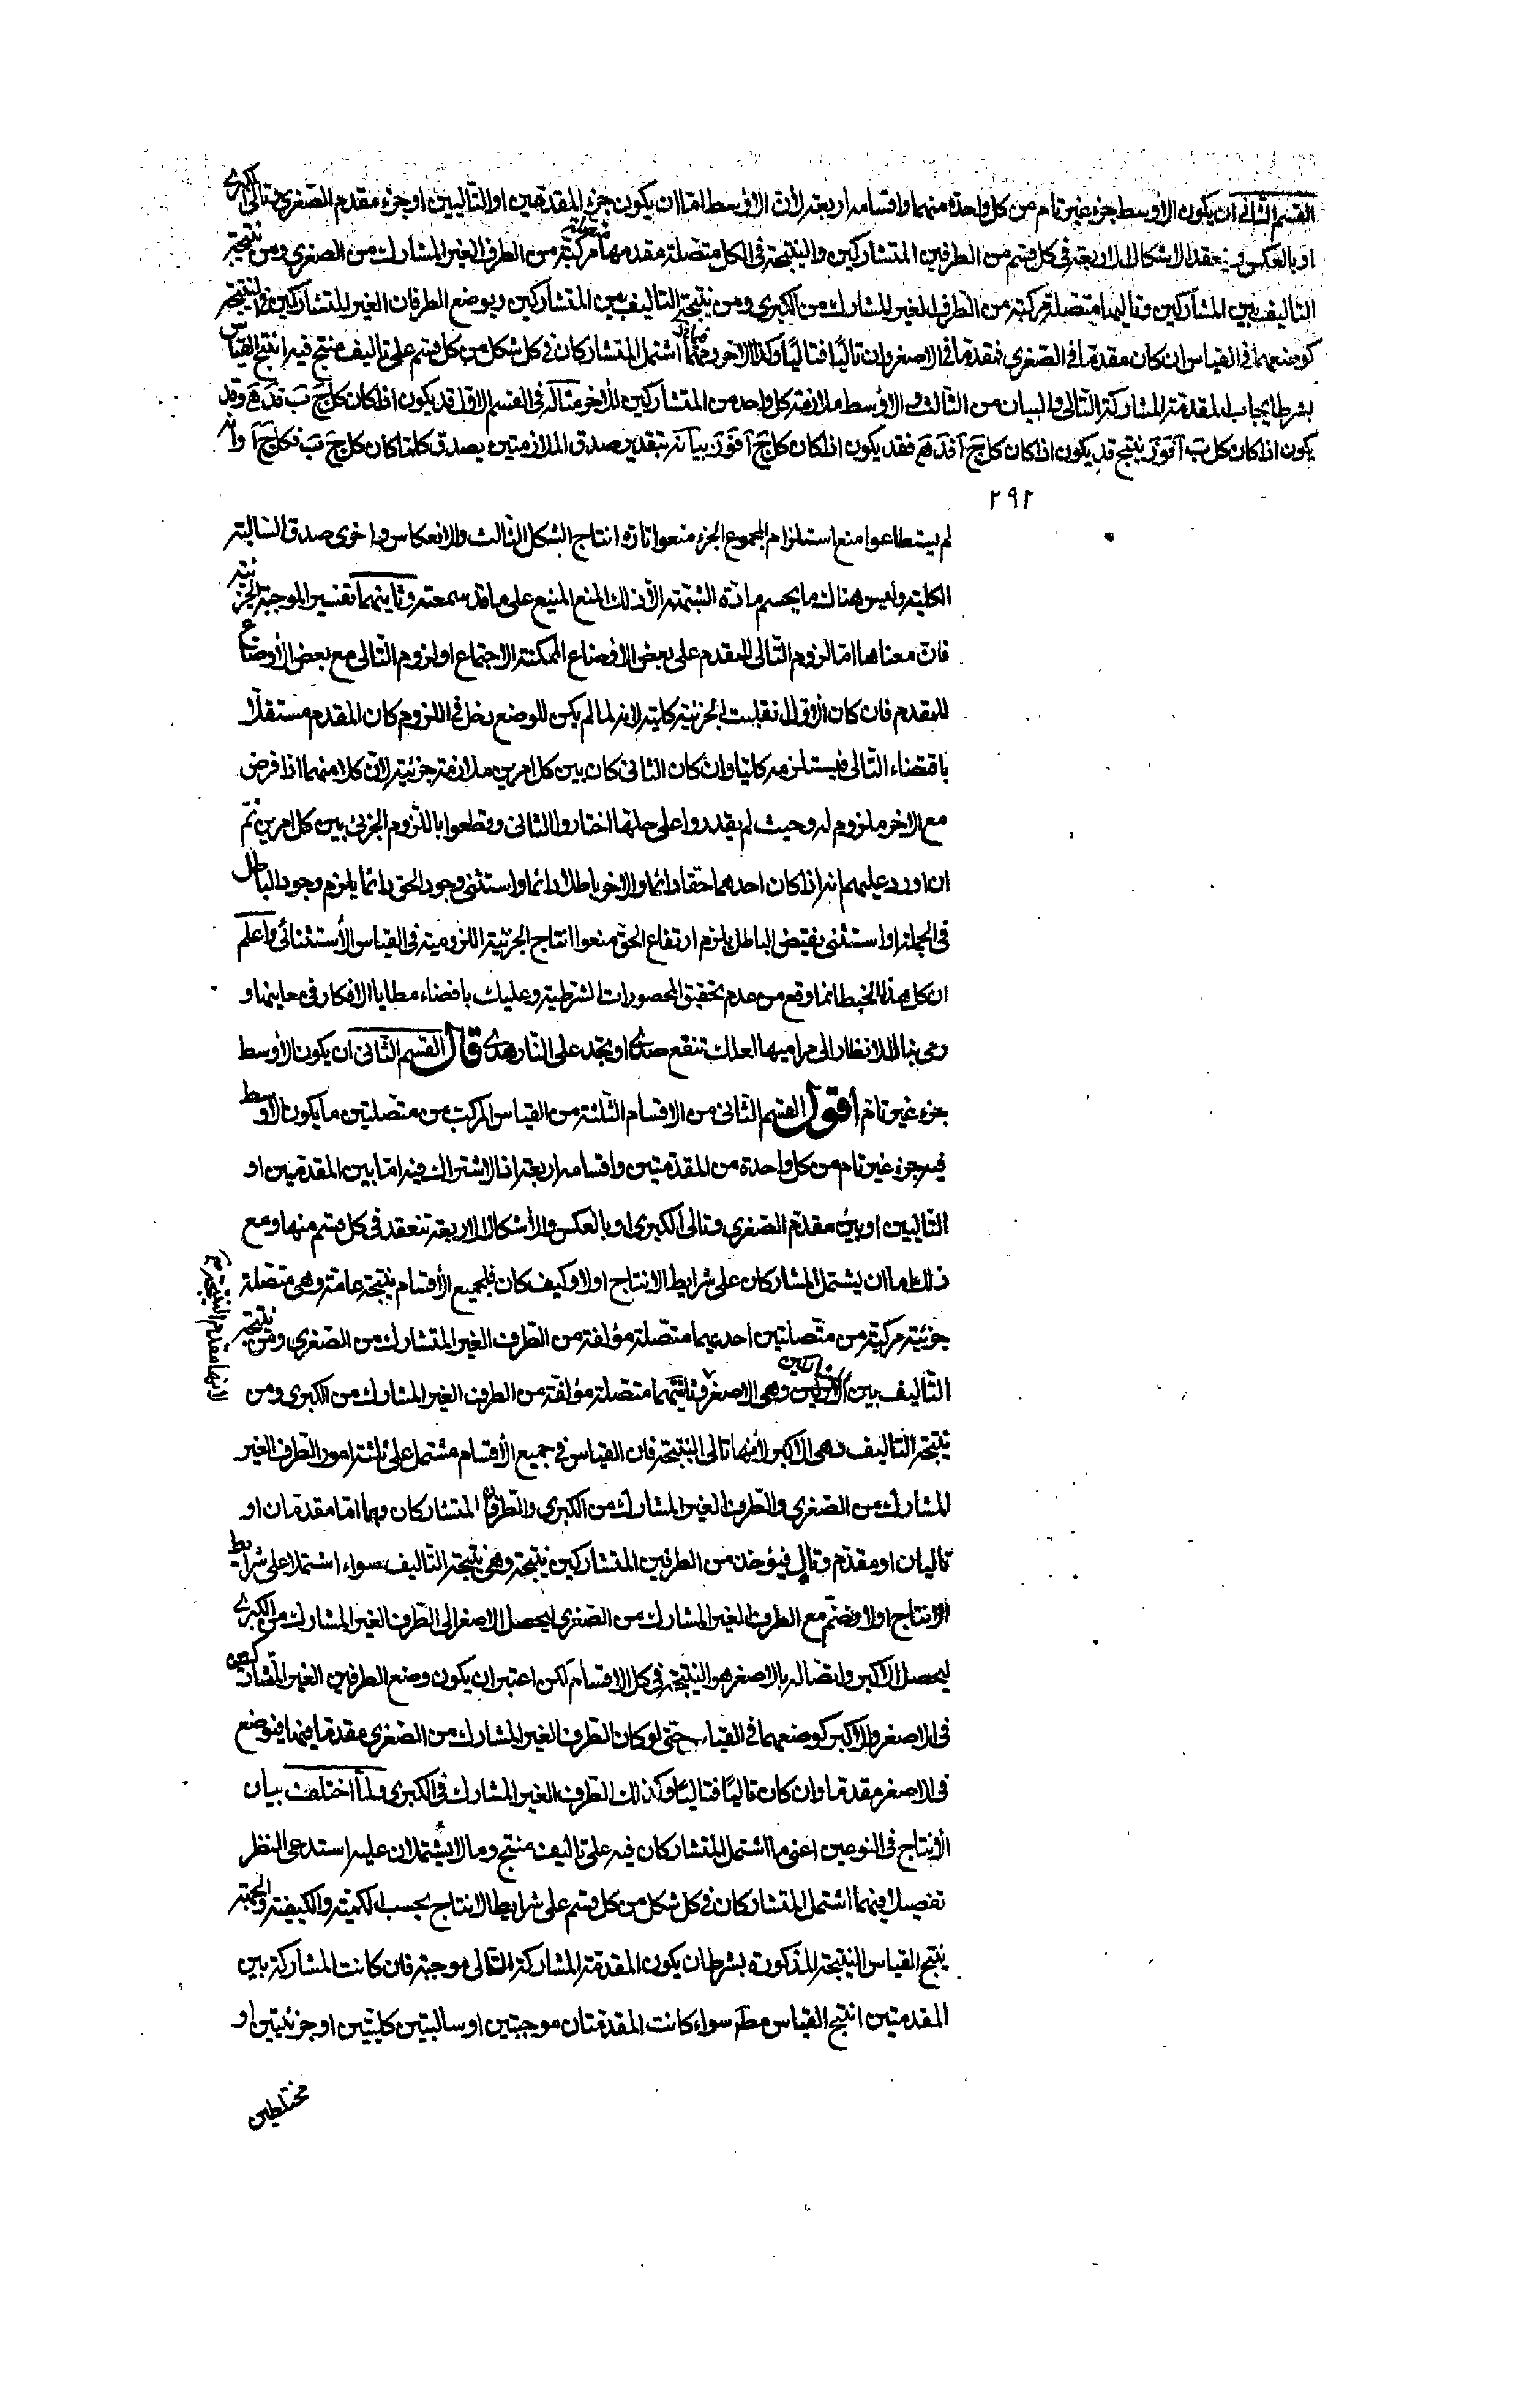 القسم الثانى ان يكون الاوسط جزء غير تام من كل واحدة منهما واقسامه اربعة لان الاوسط اما ان يكون جزء المقدمين او التاليين او جزء مقدم الصغرى وتالى الكبرى
او بالعكس وينعقد الاشكال الاربعة فى كل قسم من الطرفين المتشاركين والنتيجة فى الكل متصلة مقدمها متصلة مركبة من الطرف الغير المشارك من الصغرى ومن نتيجة
التاليف بين المتشاركين وتاليها متصلة مركبة من الطرف الغير المشارك من الكبرى ومن نتيجة التاليف بين المتشاركين ويوضع الطرفان الغير المتشاركين فى النتيجة
كوضعهما فى القياس ان كان مقدما فى الصغرى فمقدما فى الاصغر وان تاليا فتاليا وكذا الاخر ومهما اشتمل المتشاركان فى كل شكل من كل قسم على تاليف منتج فيه انتج القياس
بشرط ايجاب المقدمة المشاركة التالى والبيان من الثالث والاوسط ملازمة كل واحد من المتشاركين للاخر مثاله فى القسم الاول قد يكون اذا كان كل ج ب فد ه وقد
يكون اذا كان كل ب آ فو ز ينتج قد يكون اذا كان كل ج آ فد ه فقد يكون اذا كان كل ج آ فو ز بيانه بتقدير صدق الملازمتين يصدق كلما كان كل ج ب فكل ج آ وانه
٢٩٢
لم يستطاعوا منع استلزام المجموع الجزء منعوا تارة انتاج الشكل الثالث والانعكاس واخرى صدق السالبة
الكلية وليس هناك ما يحسم مادة الشبهة الا ذلك المنع المنيع على ما قد سمعته وثانيهما تفسير الموجبة الجزئية
فان معناها اما لزوم التالى للمقدم على بعض الاوضاع الممكنة الاجتماع او لزوم التالى مع بعض الأوضاع
للمقدم فان كان الاول انقلبت الجزئية كلية لانه لما لم يكن للوضع دخل فى اللزوم كان المقدم مستقلا
باقتضاء التالى فيستلزمه كليا وان كان الثانى كان بين كل امرين ملازمة جزئية لان كلا منهما اذا فرض
مع الاخر ملزوم له وحيث لم يقدروا على حلها اختاروا الثانى وقطعوا باللزوم الجزئى بين كل امرين ثم
ان اورد عليهم انه اذا كان احدهما حقا دائما والاخر باطلا دائما واستثنى وجود الحق دائما يلزم وجود الباطل
فى الجملة او استثنى نقيض الباطل يلزم ارتفاع الحق منعوا انتاج الجزئية اللزومية فى القياس الأستثنائى واعلم
ان كل هذا الخبط انما وقع من عدم تحقيق المحصورات الشرطية وعليك بافضاء مطايا الافكار فى معاينها و
رمى نبال الانظار الى مراميها لعلك تنقع صدى او تجد على النار هدى قال القسم الثانى ان يكون الأوسط
جزء غير تام أقول القسم الثانى من الاقسام الثلثة من القياس المركب من متصلتين ما يكون الاوسط
فيه جزء غير تام من كل واحدة من المقدمتين واقسامه اربعة اذ الاشتراك فيه اما بين المقدمين او
التاليين او بين مقدم الصغرى وتالى الكبرى او بالعكس والأشكال الاربعة تنعقد فى كل قسم منها ومع
ذلك اما ان يشتمل المشاركان على شرايط الانتاج او لا وكيف كان فلجميع الأقسام نتيجة عامة وهى متصلة
جزئية مركبة من متصلتين احديهما متصلة مؤلفة من الطرف الغير المتشارك من الصغرى ومن نتيجة
التأليف بين المتشاركين وهى الاصغر وثانيتهما متصلة مؤلفة من الطرف الغير المشارك من الكبرى ومن
لانها مقدم النتيجة
نتيجة التاليف وهى الاكبر لأنها تالى النتيجة فان القياس فى جميع الأقسام مشتمل على ثلثة امور الطرف الغير
المشارك من الصغرى والطرف الغير المشارك من الكبرى والطرفان المتشاركان وهما اما مقدمان او
تاليان او مقدم وتال فيؤخذ من الطرفين المتشاركين نتيجة وهى نتيجة التأليف سواء اشتملا على شرايط
الانتاج او لا وتضم مع الطرف الغير المشارك من الصغرى ليحصل الاصغر الى الطرف الغير المشارك من الكبرى
ليحصل الاكبر واتصاله بالاصغر هو النتيجة فى كل الاقسام لكن اعتبر ان يكون وضع الطرفين الغير المتشاركين
فى الاصغر والاكبر كوضعهما فى القياس حتى لو كان الطرف الغير المشارك من الصغرى مقدما فيها فيوضع
فى الاصغر مقدما وان كان تاليا فتاليا وكذلك الطرف الغير المشارك فى الكبرى ولما اختلفت بيان
الأنتاج فى النوعين اعنى ما اشتمل المتشاركان فيه على تاليف منتج وما لا يشتملان عليه استدعى النظر
تفصيلا فمهما اشتمل المتشاركان فى كل شكل من كل قسم على شرايط الانتاج بحسب الكمية والكيفية والجهة
ينتج القياس النتيجة المذكورة بشرط ان يكون المقدمة المشاركة التالى موجبة فان كانت المشاركة بين
المقدمتين انتج القياس مطلقا سواء كانت المقدمتان موجبتين او سالبتين كليتين او جزئيتين او
مختلطين